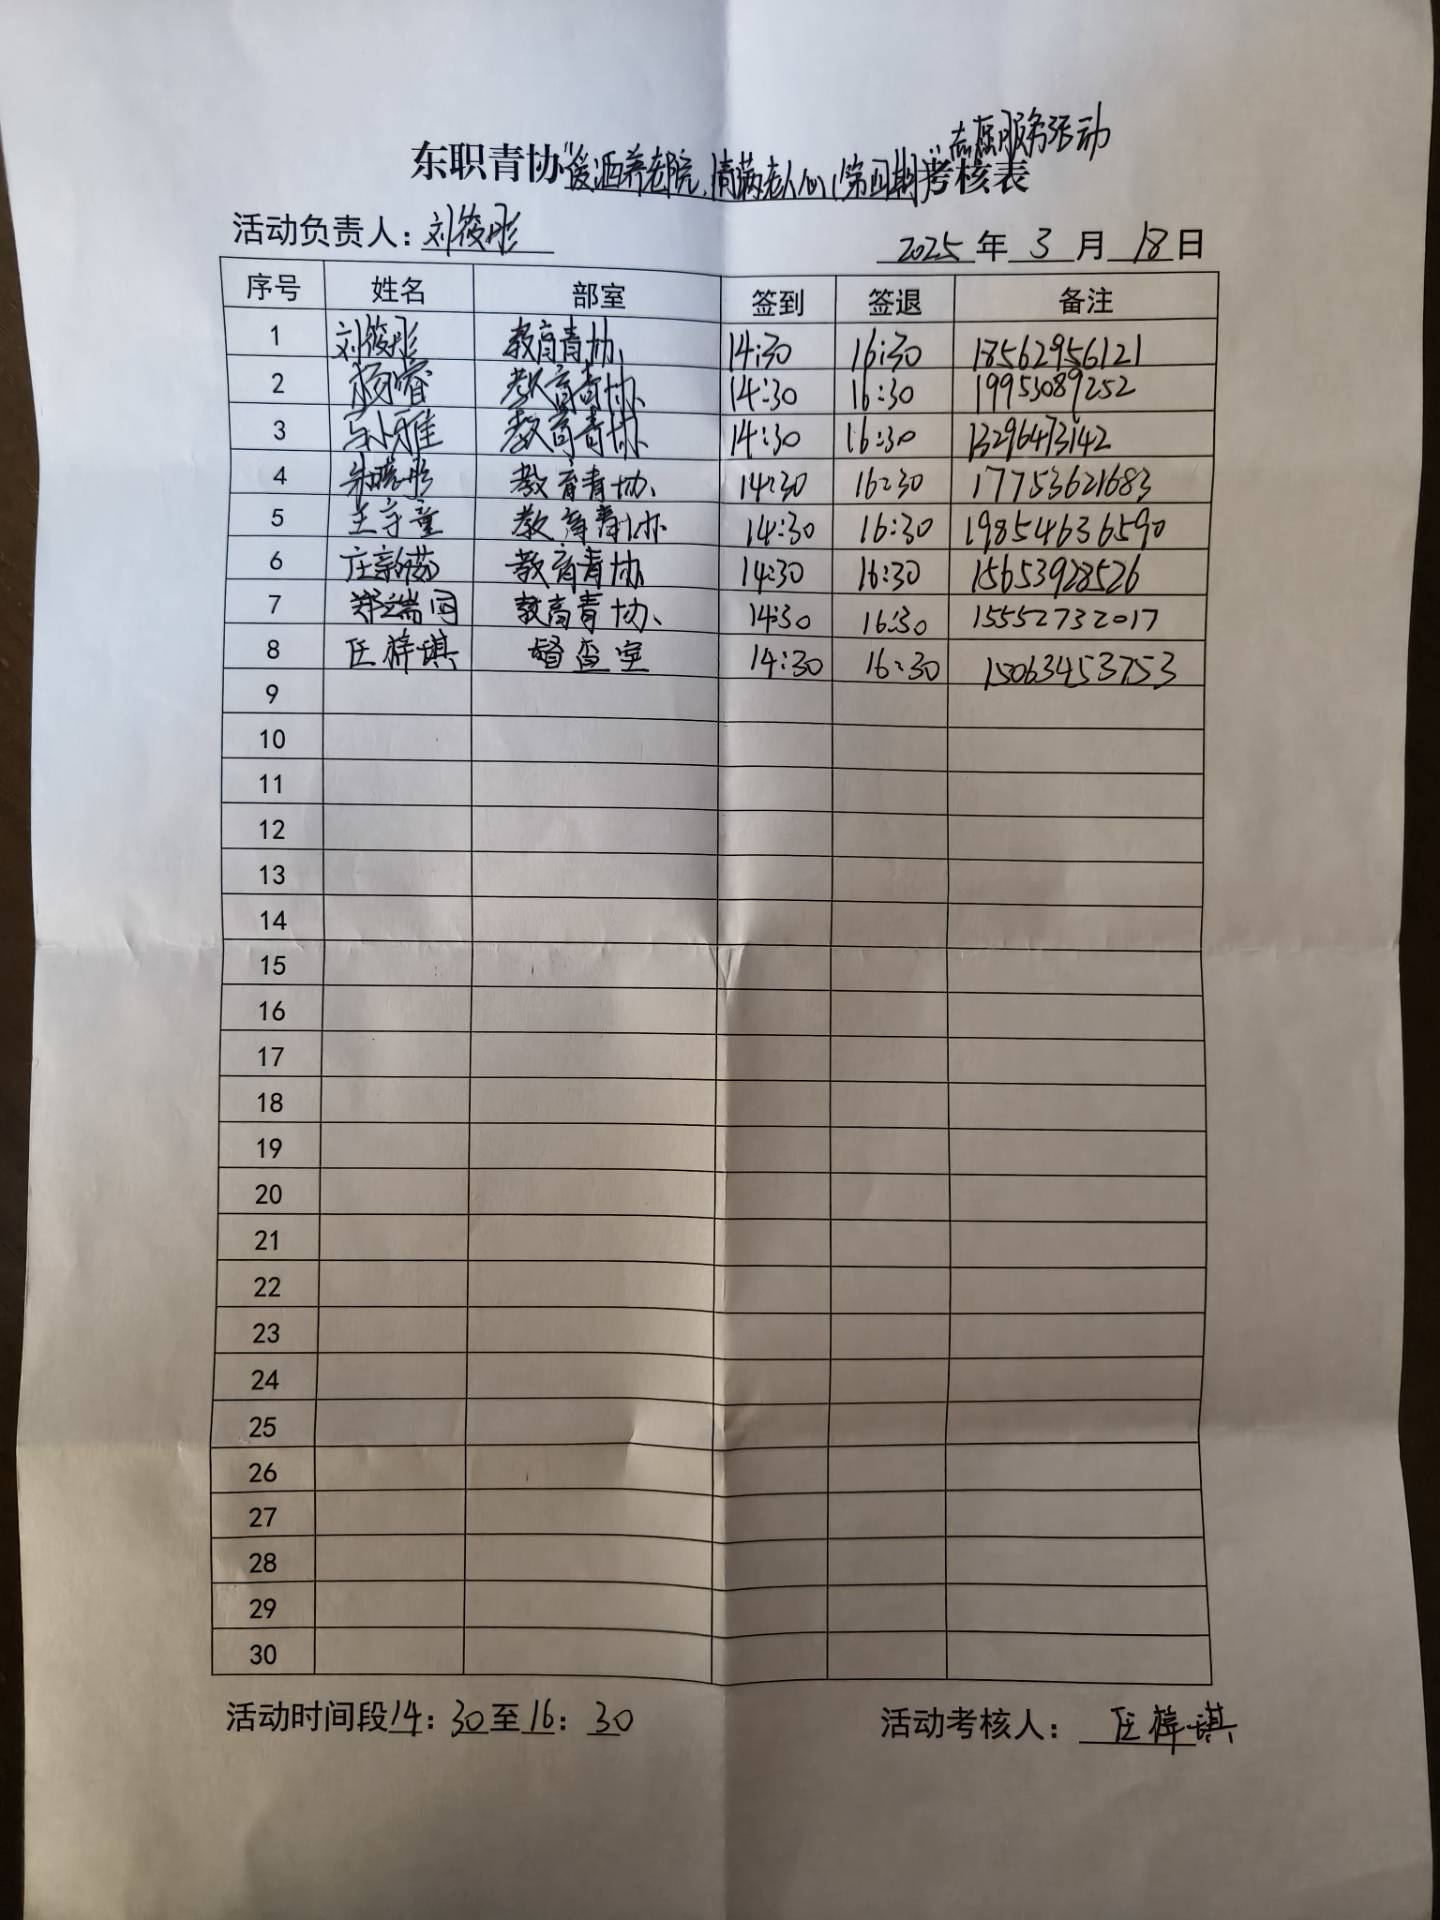 志愿服务活动
东职青协“爱洒养老院,情满老人心(第四期)”考核表
活动负责人:刘筱彤
2025年3月18日
序号 姓名 部室 签到 签退 备注
1 刘筱彤 教育青协 14:30 16:30 18562956121
2 杨睿 教育青协 14:30 16:30 19953089252
3 教育青协 14:30 16:30 13296473142
4 朱晓彤 教育青协 14:30 16:30 17753621683
5 王宇童 教育青协 14:30 16:30 19854636590
6 庄新茹 教育青协 14:30 16:30 15653928526
7 郑端同 教育青协 14:30 16:30 15552732017
8 任梓琪 督查室 14:30 16:30 15063453753
9
10
11
12
13
14
15
16
17
18
19
20
21
22
23
24
25
26
27
28
29
30
活动时间段14:30至16:30 活动考核人:任梓琪